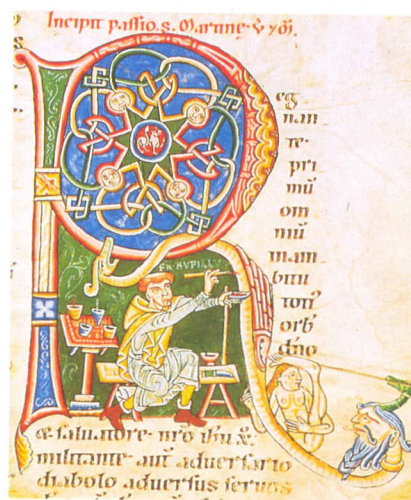 Incipit passio. s. Martine. v.
R
eg
nan
te·
pri
mū
om
niū
inam
bitu
toti'
orb'
dño
FR·RVFILLVS
& saluatore· nr̄o ihū x̄·
militante· aut̄ aduersario
diabolo aduersus seruos